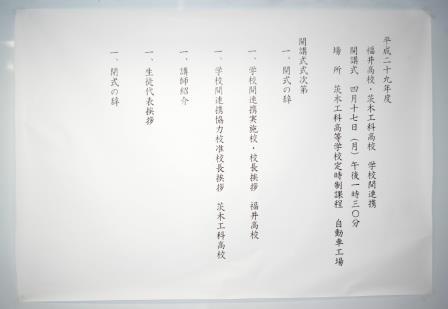 平成二十九年度
福井高校・茨木工科高校 学校間連携
開講式 四月十七日(月)午後一時三〇分
場 所 茨木工科高等学校定時制課程 自動車工場
開講式式次第
一、開式の辞
一、学校間連携実施校・校長挨拶 福井高校
一、学校間連携協力校准校長挨拶 茨木工科高校
一、講師紹介
一、生徒代表挨拶
一、閉式の辞